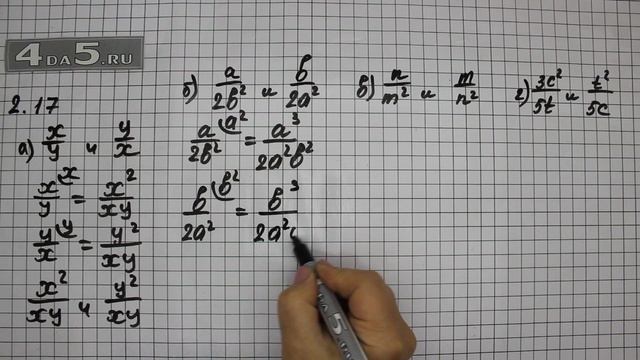 4DA5.RU
2.17
а) x/y и y/x
x/y ^x = x²/xy
y/x ^y = y²/xy
x²/xy и y²/xy
б) a/2b² и b/2a²
a/2b² ^a² = a³/2a²b²
b/2a² ^b² = b³/2a²
в) n/m² и m/n²
г) 3c²/5t и t²/5c